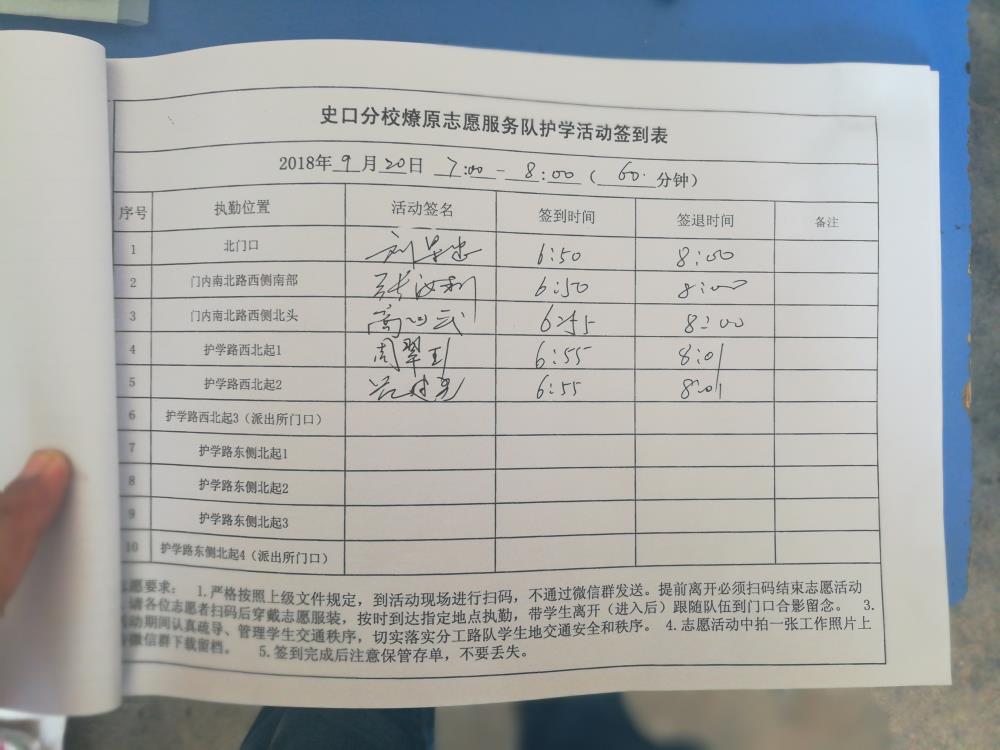 史口分校燎原志愿服务队护学活动签到表
2018年9月20日 7:00-8:00(60.分钟)
序号 执勤位置 活动签名 签到时间 签退时间 备注
1 北门口 6:50 8:00
2 门内南北路西侧南部 张 6:50 8:00
3 门内南北路西侧北头 高 6:45 8:00
4 护学路西北起1 周翠 6:55 8:01
5 护学路西北起2 6:55 8:01
6 护学路西北起3(派出所门口)
7 护学路东侧北起1
8 护学路东侧北起2
9 护学路东侧北起3
10 护学路东侧北起4(派出所门口)
愿要求: 1.严格按照上级文件规定,到活动现场进行扫码,不通过微信群发送。提前离开必须扫码结束志愿活动
请各位志愿者扫码后穿戴志愿服装,按时到达指定地点执勤,带学生离开(进入后)跟随队伍到门口合影留念。 3.
动期间认真疏导、管理学生交通秩序,切实落实分工路队学生地交通安全和秩序。4.志愿活动中拍一张工作照片上
微信群下载留档。 5.签到完成后注意保管存单,不要丢失。